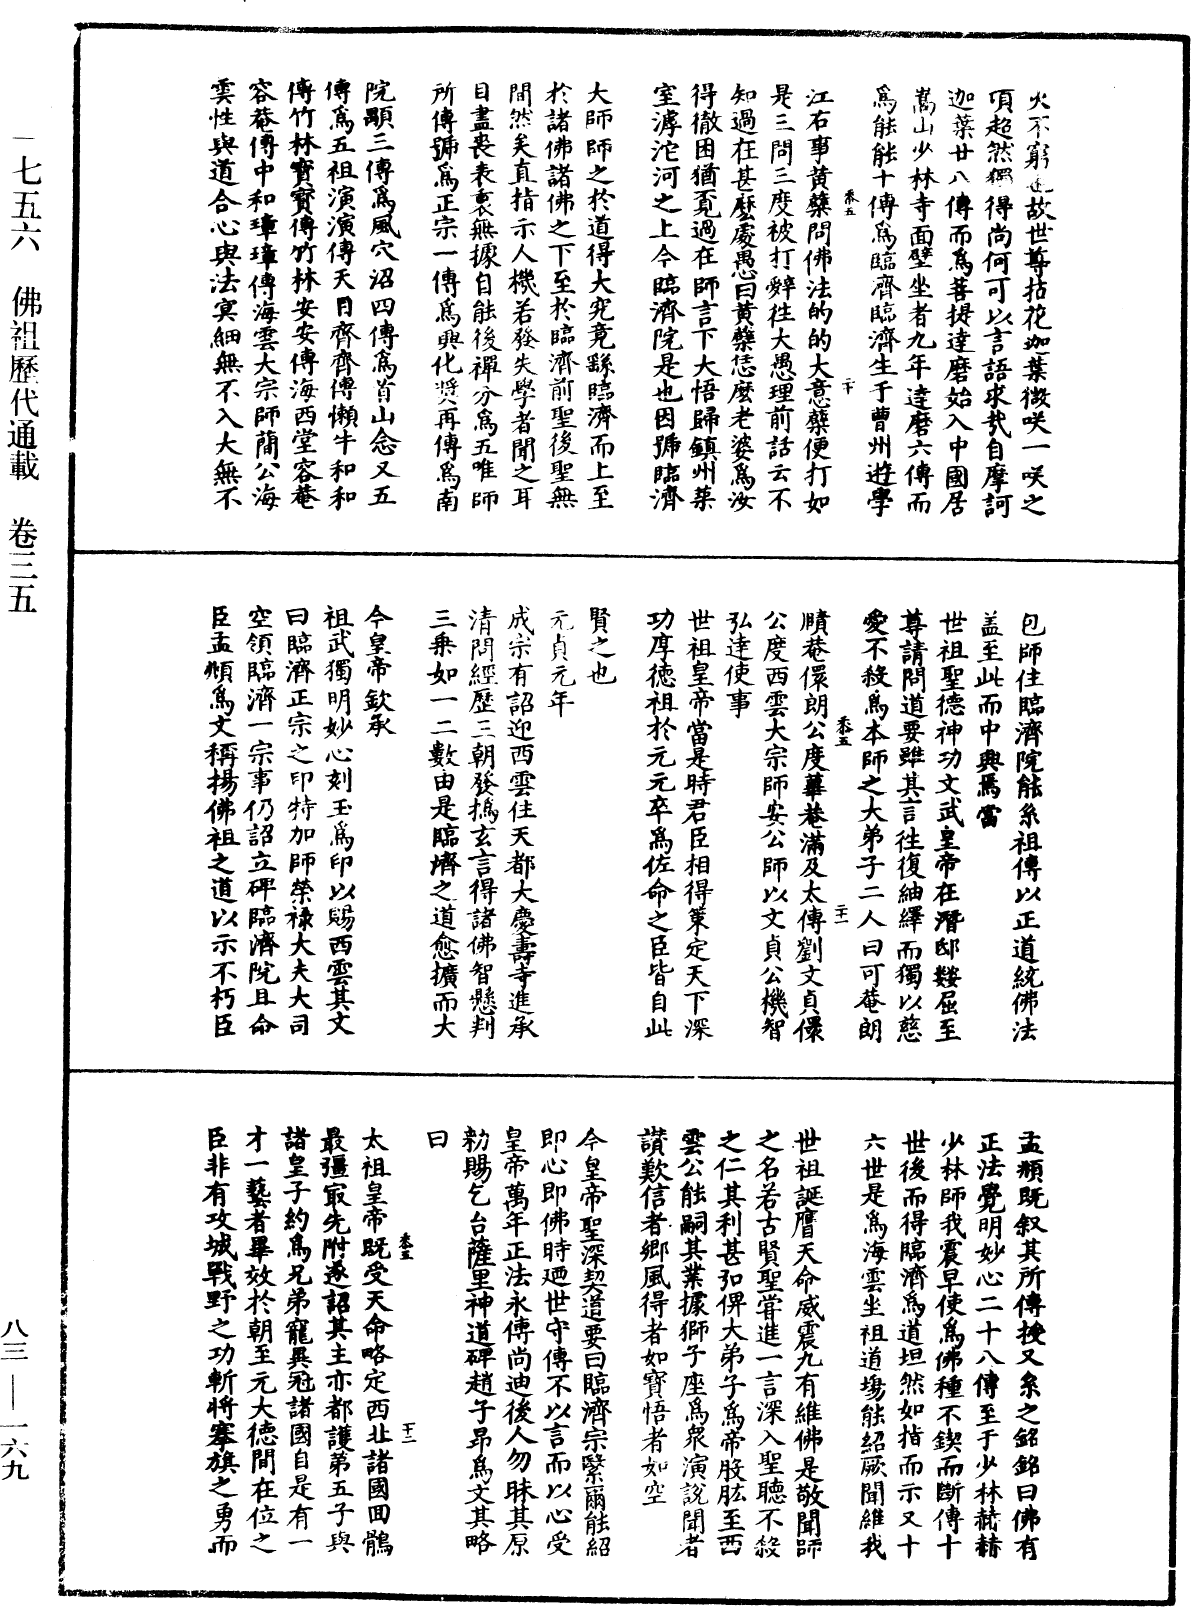 一七五六 佛祖歷代通載 卷三五
火不窮也故世尊拈花迦葉微咲一咲之
項超然獨得尚何可以言語求㢤自摩訶
迦葉廿八傳而為菩提達磨始入中國居
嵩山少林寺面壁坐者九年達磨六傳而
為能能十傳為臨濟臨濟生于曹州遊學
江右事黃蘗問佛法的的大意蘗便打如
是三問三度被打辤往大愚理前話云不
知過在甚麼處愚曰黃蘗恁麼老婆為汝
得徹困猶覔過在師言下大悟歸鎮州築
室滹沱河之上今臨濟院是也因號臨濟
大師師之於道得大究竟繇臨濟而上至
於諸佛諸佛之下至於臨濟前聖後聖無
間然矣直指示人機若發失學者聞之耳
目盡喪表裏無據自能後禪分為五唯師
所傳號為正宗一傳為興化獎再傳為南
院顒三傳為風穴沼四傳為首山念又五
傳為五祖演演傳天目齊齊傳懶牛和和
傳竹林寶寶傳竹林安安傳海西堂容菴
容菴傳中和璋璋傳海雲大宗師簡公海
雲性與道合心與法㝠細無不入大無不
包師住臨濟院能系祖傳以正道統佛法
盖至此而中興焉當
世祖聖德神功文武皇帝在潛邸數屈至
尊請問道要雖其言往復紬繹而獨以慈
愛不殺為本師之大弟子二人曰可菴朗
賾菴儇朗公度華巷滿及太傅劉文貞儇
公度西雲大宗師安公師以文貞公機智
弘達使事
世祖皇帝當是時君臣相得策定天下深
功厚德祖於元元卒為佐命之臣皆自此
賢之也
元貞元年
成宗有詔迎西雲住天都大慶壽寺進承
清問經歷三朝發撝玄言得諸佛智懸判
三乘如一二數由是臨濟之道愈擴而大
今皇帝欽承
祖武獨明妙心刻玉為印以賜西雲其文
曰臨濟正宗之印特加師榮祿大夫大司
空領臨濟一宗事仍詔立碑臨濟院且命
臣孟頫為文稱揚佛祖之道以示不朽臣
孟頫既叙其所傳授又系之銘銘曰佛有
正法覺明妙心二十八傳至于少林赫赫
少林師我震早使為佛種不鍥而斷傳十
世後而得臨濟為道坦然如指而示又十
六世是為海雲坐祖道塲能紹厥聞維我
世祖誕膺天命威震九有維佛是敬聞師
之名若古賢聖甞進一言深入聖聽不殺
之仁其利甚弘俾大弟子為帝股肱至西
雲公能嗣其業據獅子座為衆演說聞者
讃歎信者鄉風得者如寶悟者如空
今皇帝聖深契道要曰臨濟宗繄爾能紹
即心即佛時廼世守傳不以言而以心受
皇帝萬年正法永傳尚迪後人勿昧其原
勑賜乞台薩里神道碑趙子昂為文其略
曰
太祖皇帝既受天命略定西北諸國回鶻
最彊㝡先附遂詔其主亦都護第五子與
諸皇子約為兄弟寵異冠諸國自是有一
才一藝者畢效於朝至元大德間在位之
臣非有攻城戰野之功斬將搴旗之勇而
八三—一六九